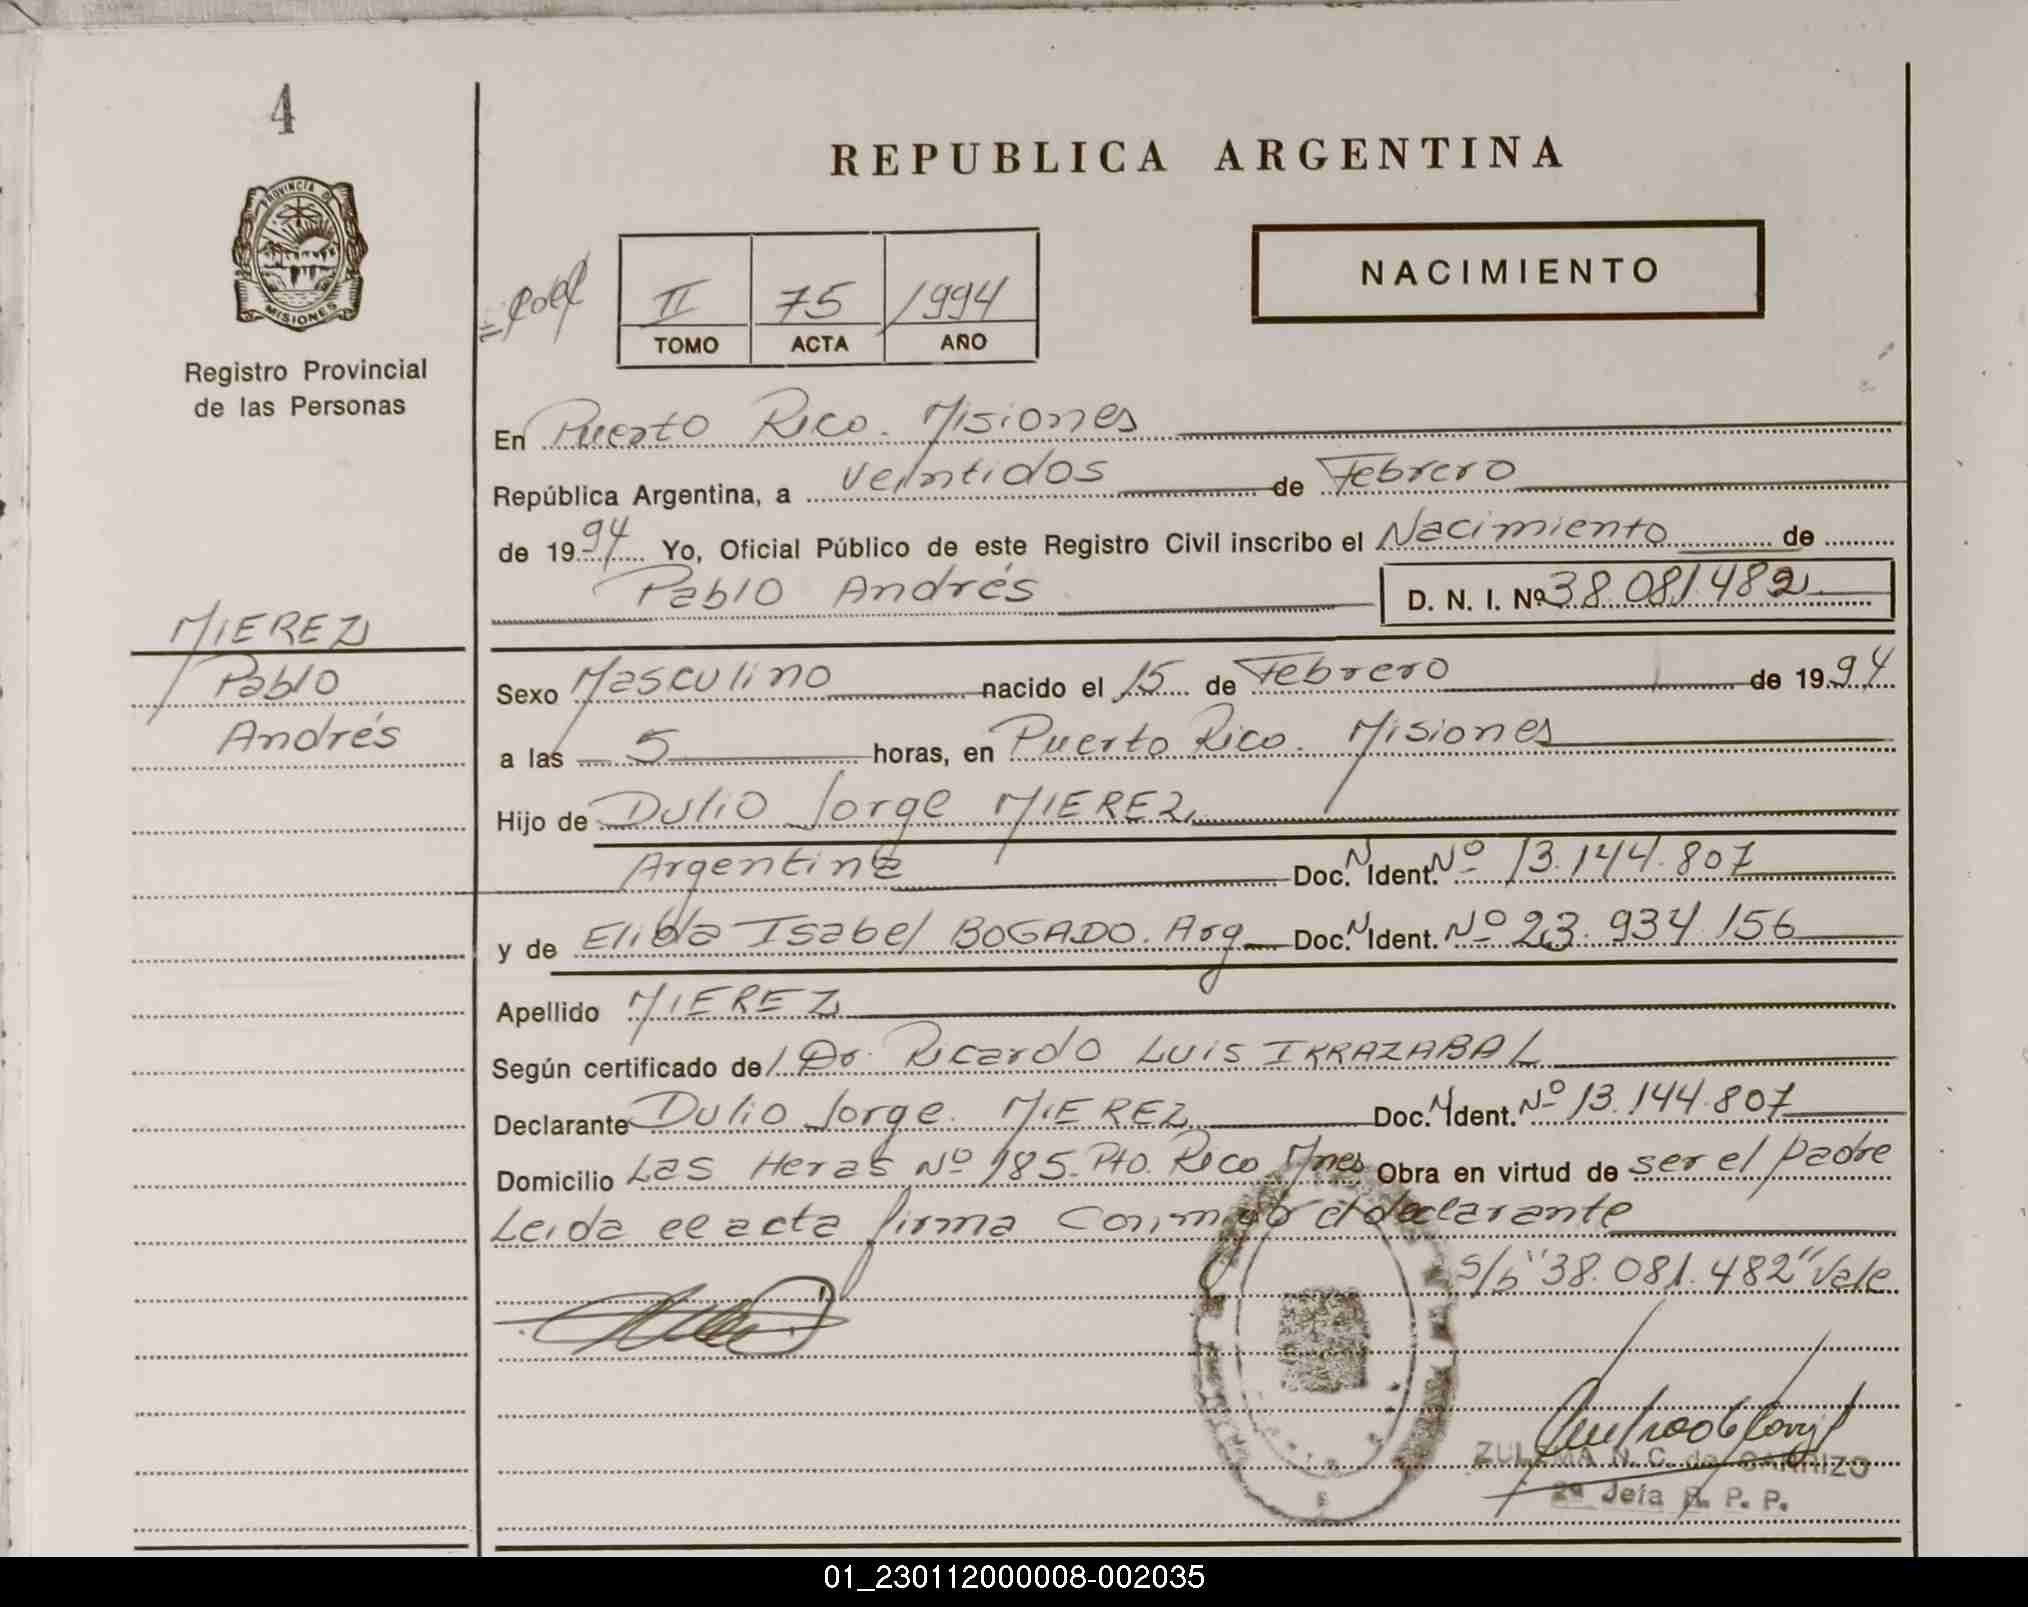 4
REPUBLICA ARGENTINA
PROVINCIA DE
MISIONES
Registro Provincial
de las Personas
NACIMIENTO
II 75 1994
TOMO ACTA AÑO
En Puerto Rico. Misiones
República Argentina, a veintidos de Febrero
de 1994 Yo, Oficial Público de este Registro Civil inscribo el Nacimiento de
Pablo Andrés D. N. I. Nº 38.081.482
MIEREZ
Pablo
Andrés
Sexo Masculino nacido el 15 de Febrero de 1994
a las 5 horas, en Puerto Rico. Misiones
Hijo de Dulio Jorge MIEREZ
Argentina Doc. N Ident. Nº 13.144.807
y de Elibia Isabel BOGADO. Arg Doc. N Ident. Nº 23.934.156
Apellido MIEREZ
Según certificado de Dr. Ricardo Luis IRRAZABAL
Declarante Dulio Jorge MIEREZ Doc. N Ident. Nº 13.144.807
Domicilio Las Heras Nº 185. Pto. Rico Mnes Obra en virtud de ser el padre
Leida el acta firma conmigo el declarante
s/b "38.081.482" Vale
ZULEMA N. C. de CARRIZO
2ª Jefa R. P. P.
01_230112000008-002035